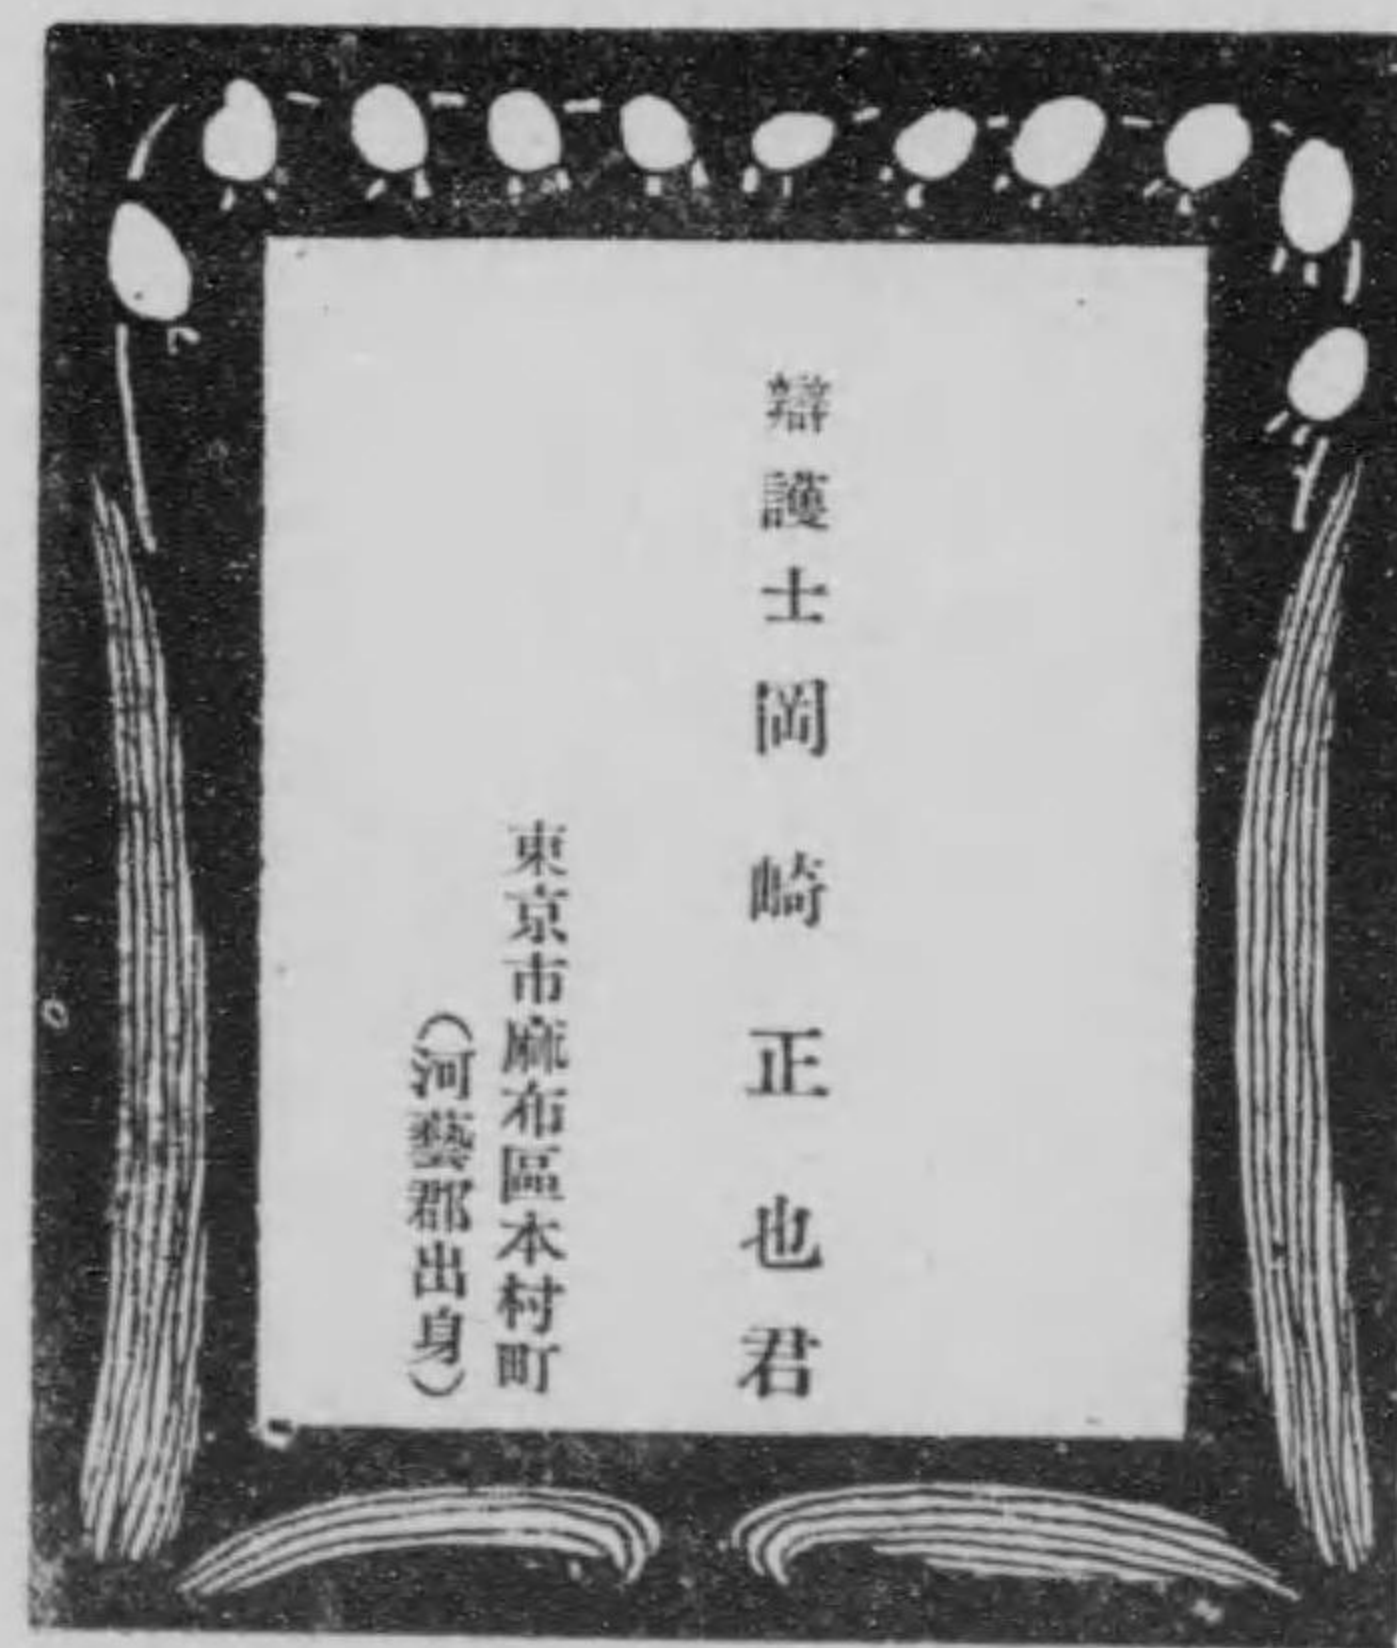 辯護士岡崎正也君
東京市麻布區本村町
（河藝郡出身）